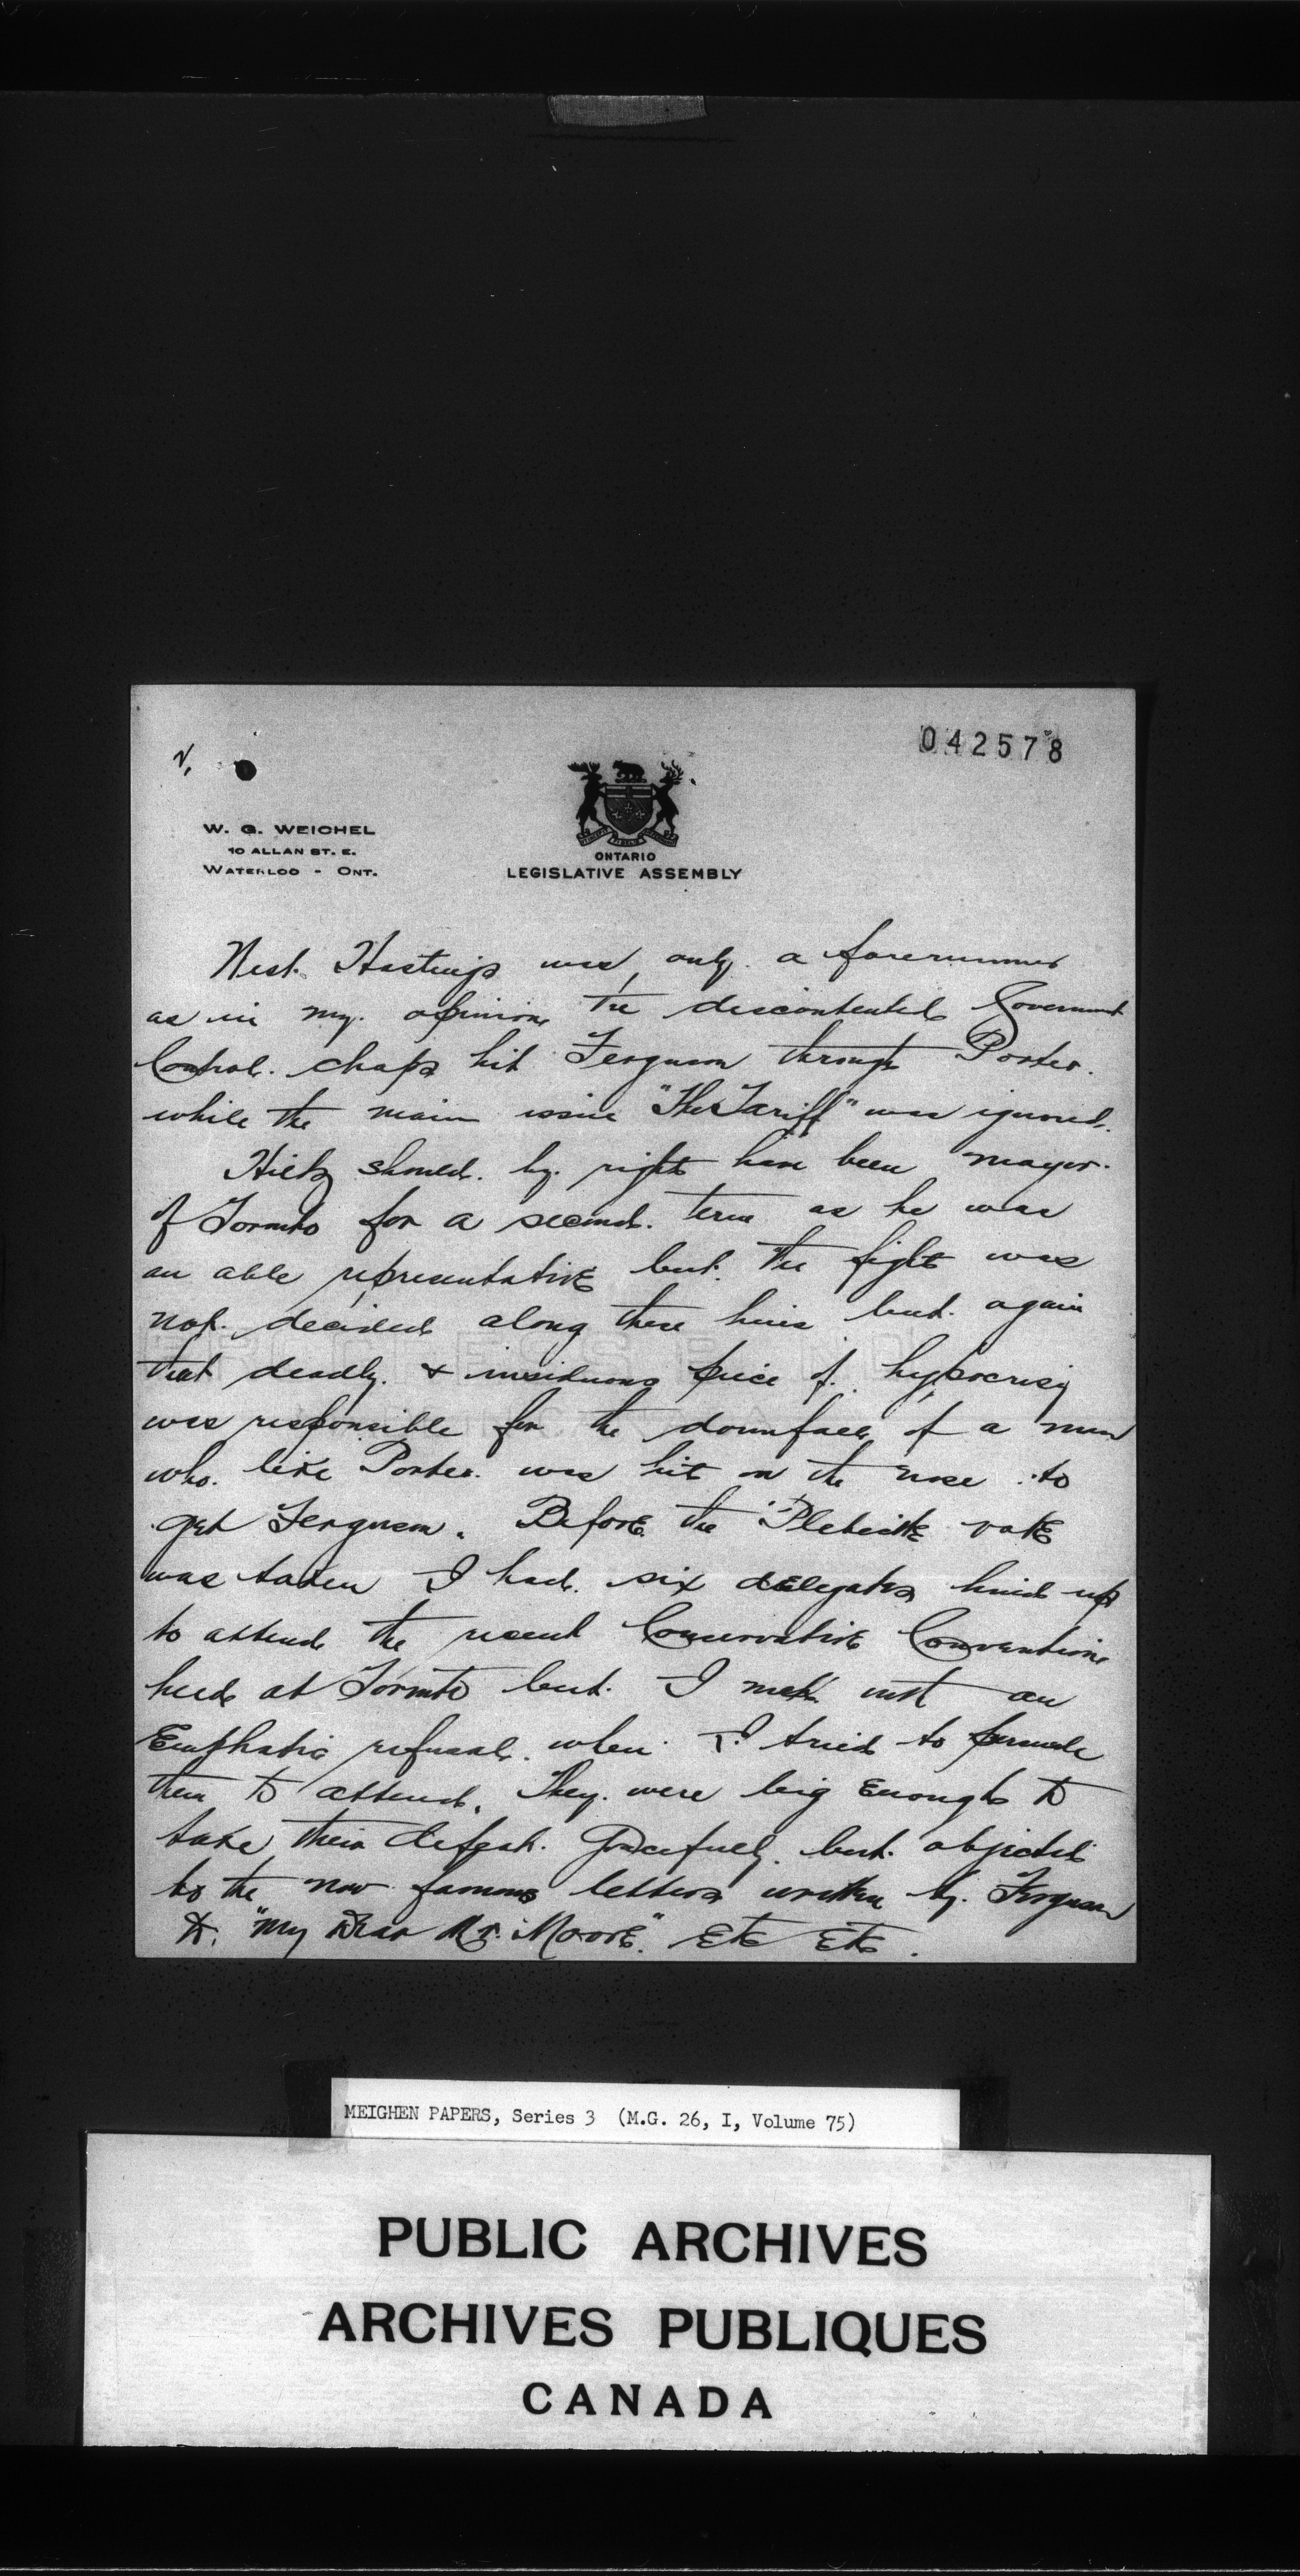 2.
042578
W. G. WEICHEL
10 ALLAN ST. E.
WATERLOO - ONT.
ONTARIO
LEGISLATIVE ASSEMBLY
West Hastings was only a forerunner
as in my opinion the discontented Government
Control chaps hit Ferguson through Porter.
while the main issue "The Tariff" was ignored.
Hiltz should by rights have been mayor
of Toronto for a second term as he was
an able representative but the fight was
not decided along these lines but again
that deadly & insiduous piece of hypocrisy
was responsible for the downfall of a man
who like Porter was hit on the nose to
get Ferguson. Before the Plebicite vote
was taken I had six delegates lined up
to attend the recent Conservative Convention
held at Toronto but I met with an
Emphatic refusal when I tried to persuade
them to attend. They were big enough to
take their defeat gracefully but objected
to the now famous letters written by Ferguson
to "My Dear Mr. Moore." Etc Etc.
MEIGHEN PAPERS, Series 3 (M.G. 26, I, Volume 75)
PUBLIC ARCHIVES
ARCHIVES PUBLIQUES
CANADA